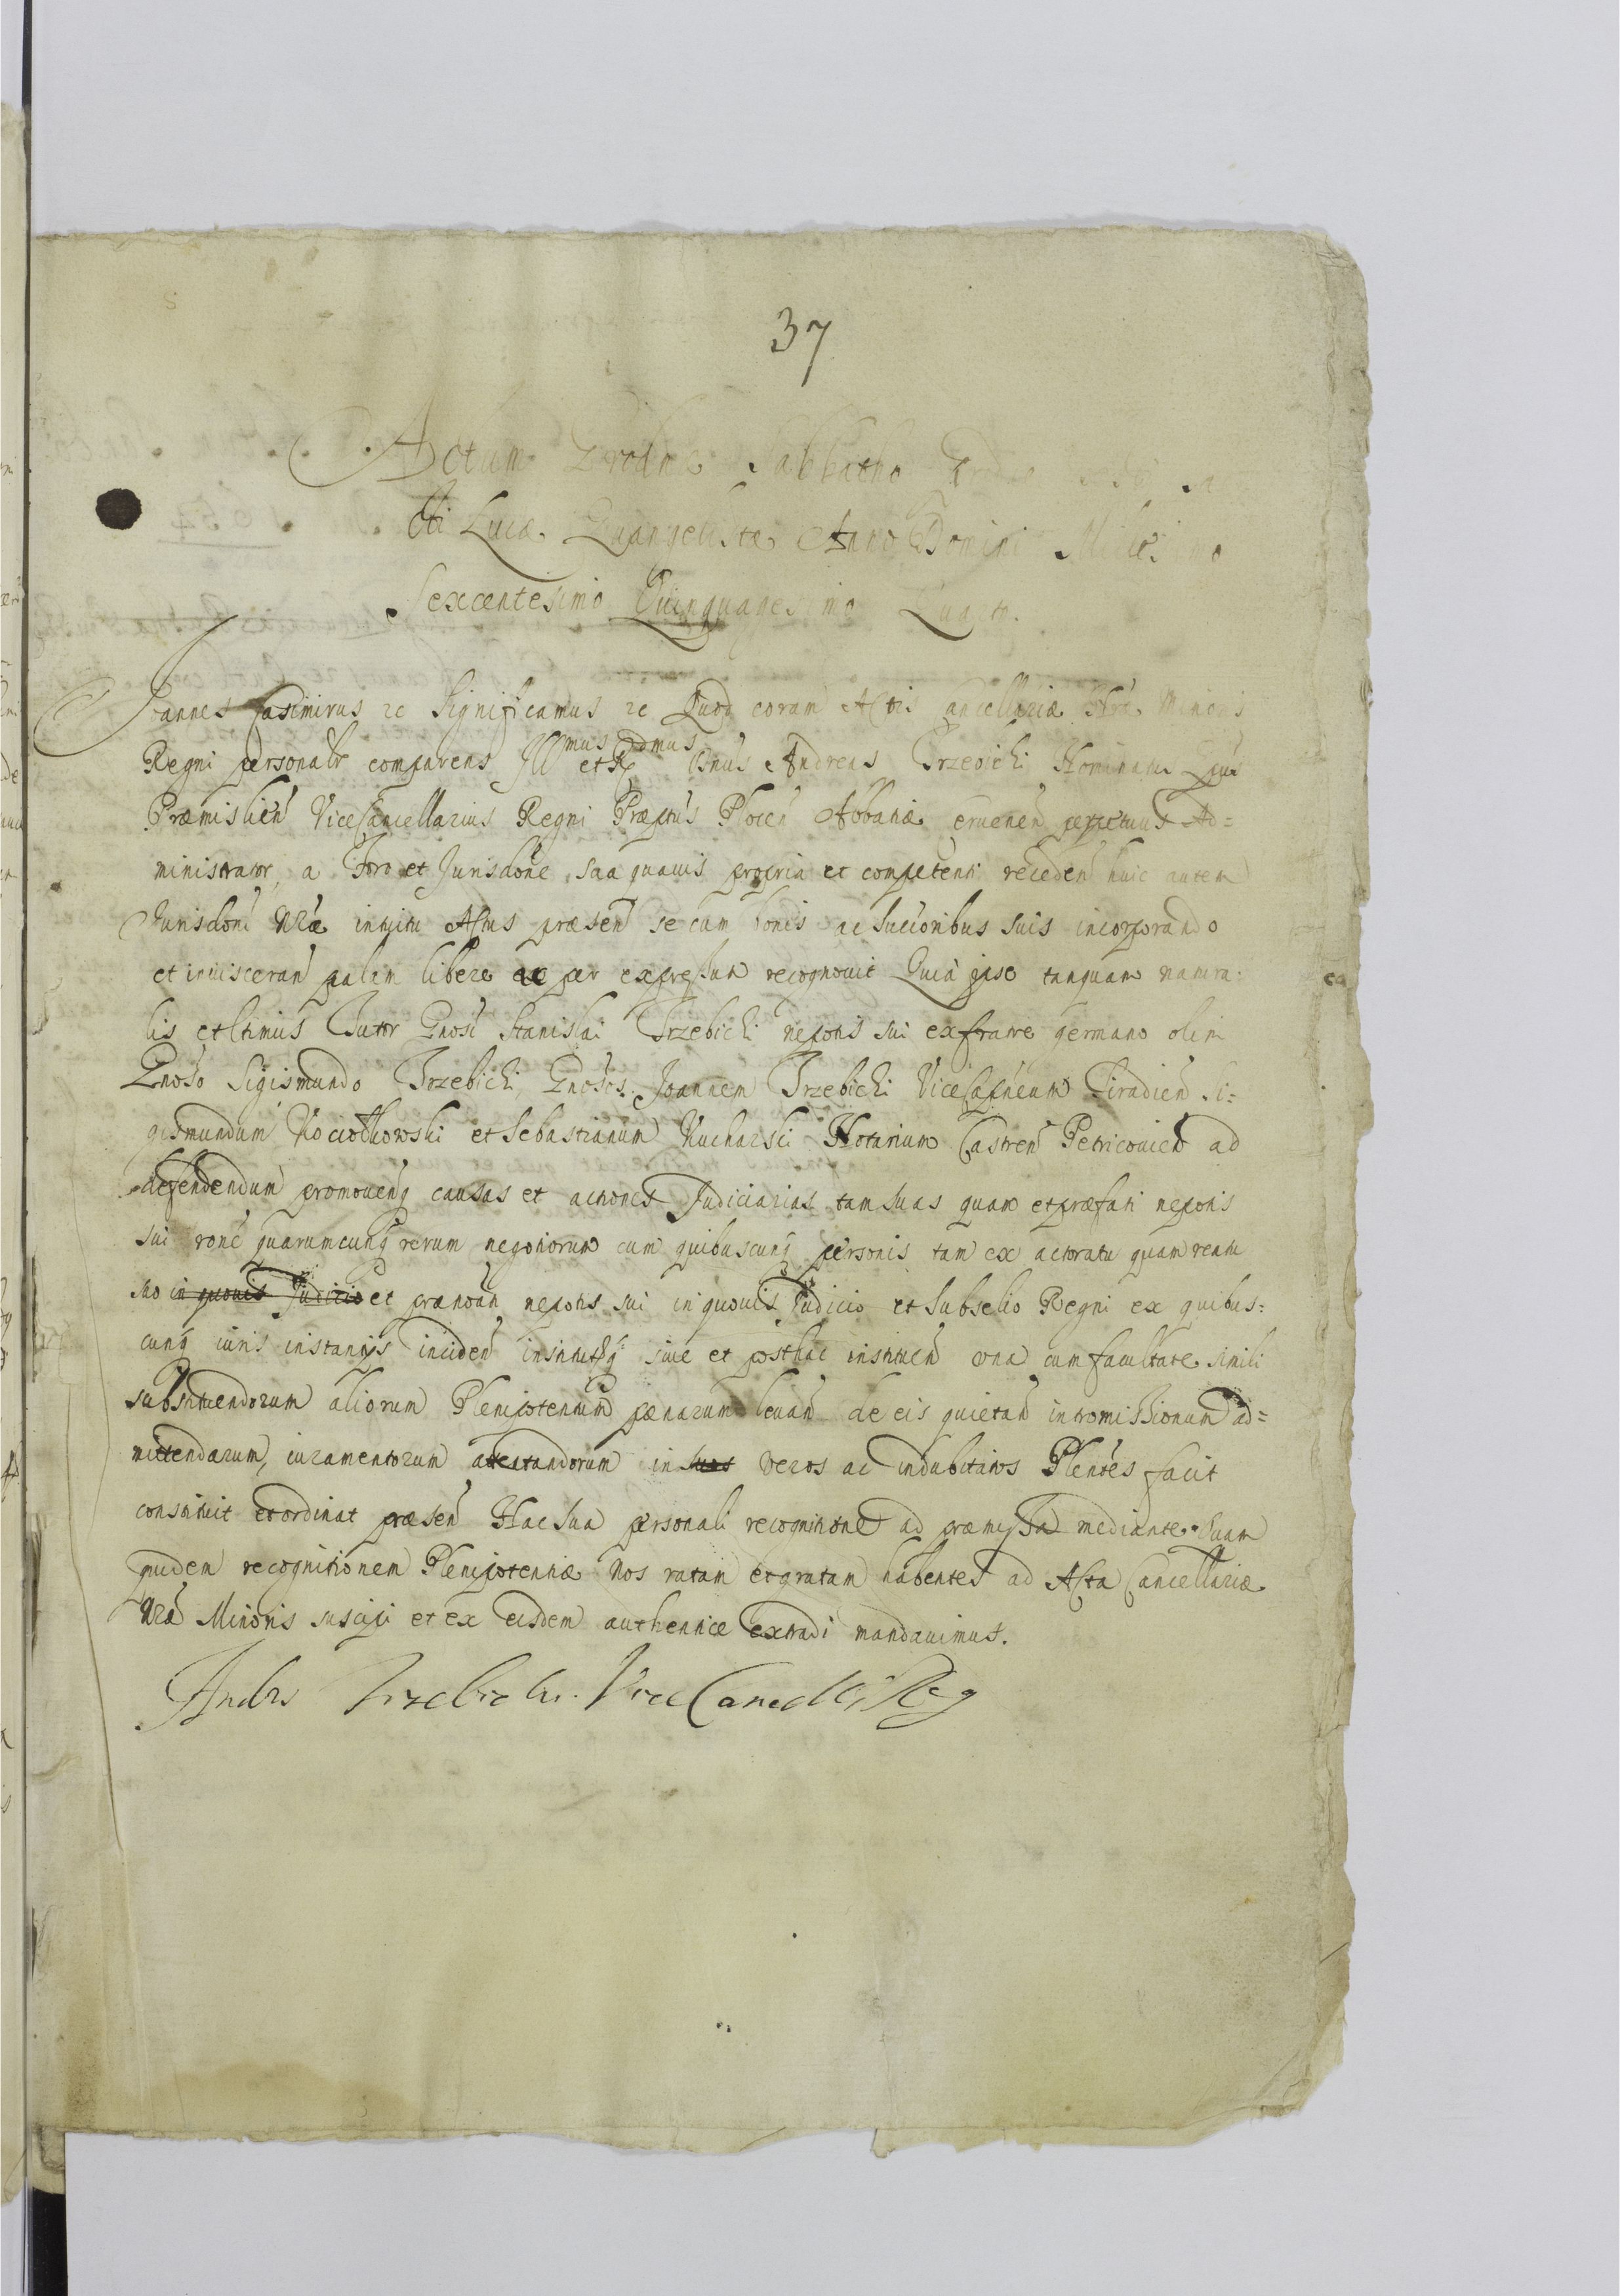 37
Actum Grodnæ Sabbatho
Sti Lucæ Euangelistæ Anno Domini Millesimo
Sexcentesimo Quinquagesimo Quarto.
Joannes Casimirus &c Significamus &c Quod coram Actis Cancellariæ Nræ Minoris
Regni personalr comparens Illmus et Rndmus Dnus Andreas Trzebicki Nominatus Epus
Præmislien ViceCancellarius Regni Præptus Plocen Abbatiæ eruenen perpetuus Ad=
ministrator, a Foro et Jurisdone sua quauis propria et competenti receden huic autem
Jurisdoni Nræ intuitu Actus præsen se cum bonis ac succoribus suis incorporando
et inuisceran palam libere ac per expressum recognouit Quia ipse tanquam natura:
lis et ltimus Tutor Gnosi Stanislai Trzebicki nepotis sui ex fratre germano olim
Gnoso Sigismundo Trzebicki, Gnosos. Joannem Trzebicki ViceCapneum Siradien Si:
gismundum Kociołkowski et Sebastianum Kucharski Notarium Castren Petricouien ad
defendendum promouenq causas et actiones Judiciarias tam suas quam et præfati nepotis
sui rone quarumcunq rerum negotiorum cum quibuscunq personis tam ex actoratu quam reatu
suo in quouis Judicio et prænoan nepotis sui in quouis Judicio et Subselio Regni ex quibus:
cunq iuris instantijs inciden institutisq siue et posthac instituen vna cum facultate simili
substituendorum aliorum Plenipotentum pænarum leuan de eis quietan intromissionum ad=
mittendarum, iuramentorum attentandorum in suos veros ac indubitatos Plentes facit
constituit et ordinat præsen Hac sua personali recognitione ad præmissa mediante. Quam
quidem recognitionem Plenipotentiæ Nos ratam et gratam habentes ad Acta Cancellariæ
Nræ Minoris suscipi et ex eisdem authentice extradi mandauimus.
Andrs Trzebicki. ViceCancell Reg